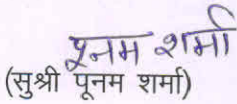 पूनम शर्मा
(सुश्री पूनम शर्मा)